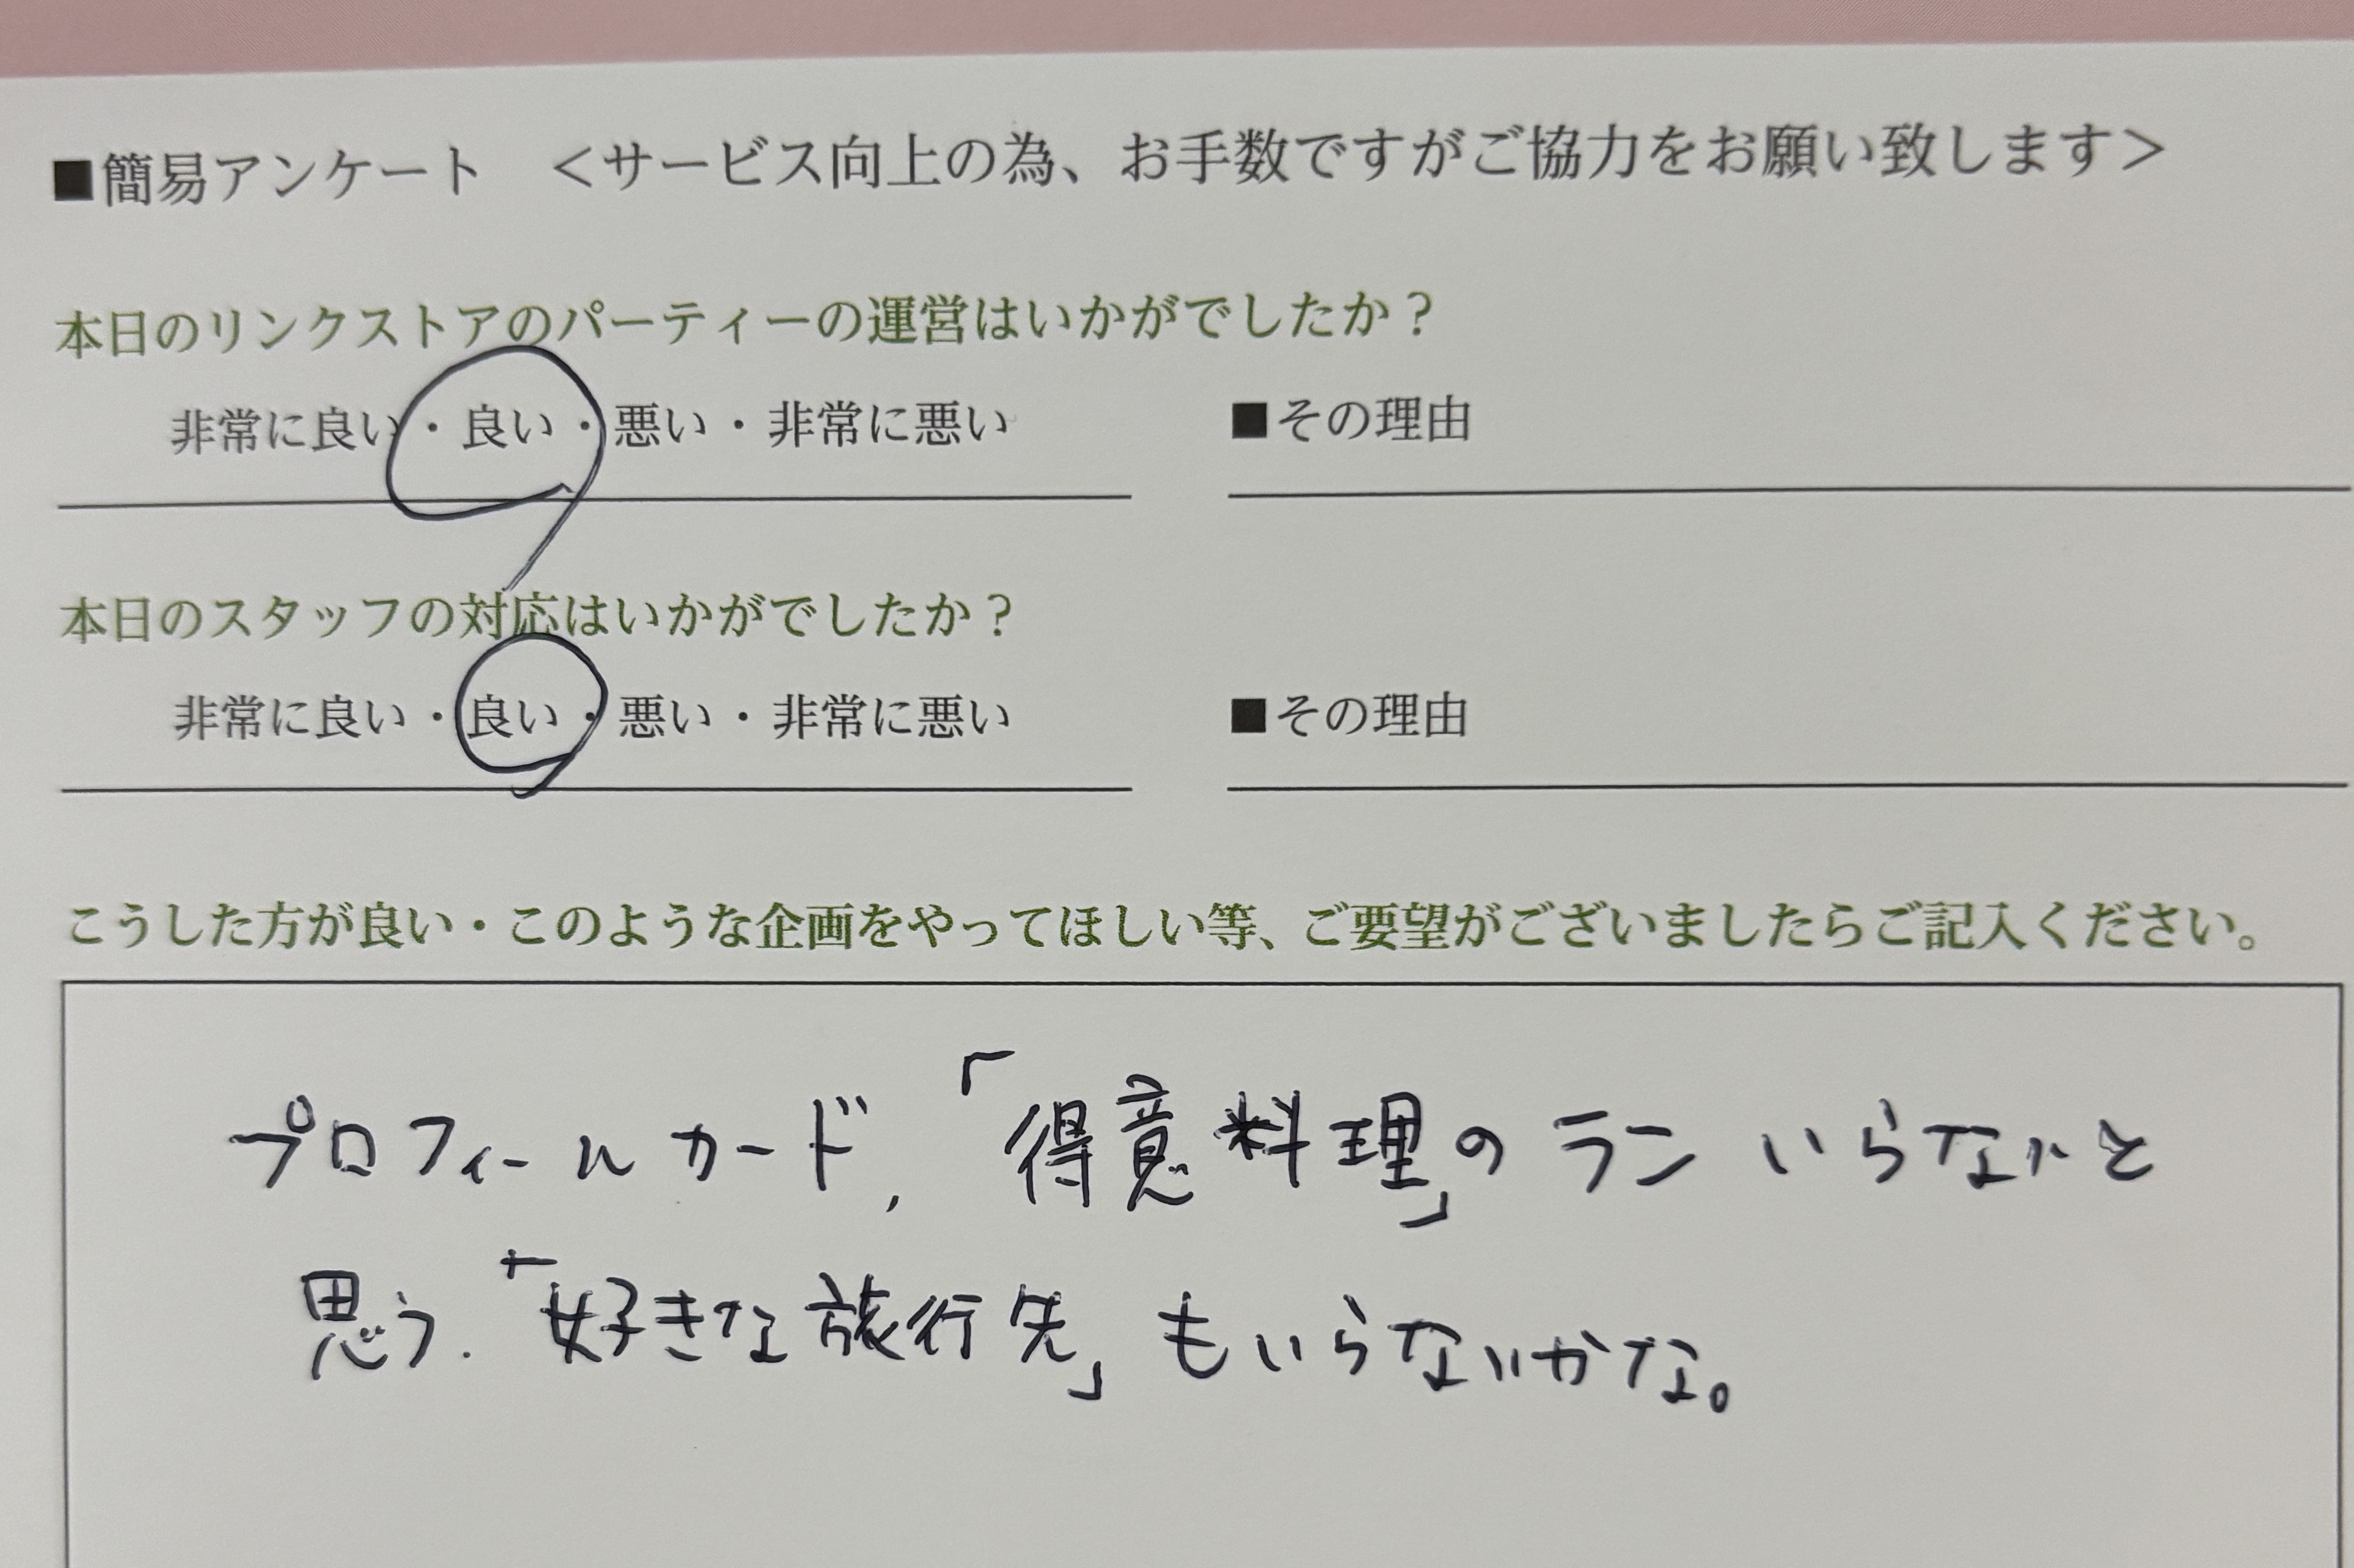 ■簡易アンケート　＜サービス向上の為、お手数ですがご協力をお願い致します＞
本日のリンクストアのパーティーの運営はいかがでしたか？
非常に良い・良い・悪い・非常に悪い　■その理由
本日のスタッフの対応はいかがでしたか？
非常に良い・良い・悪い・非常に悪い　■その理由
こうした方が良い・このような企画をやってほしい等、ご要望がございましたらご記入ください。
プロフィールカード、「得意料理」のラン いらないと
思う.「好きな旅行先」もいらないかな。